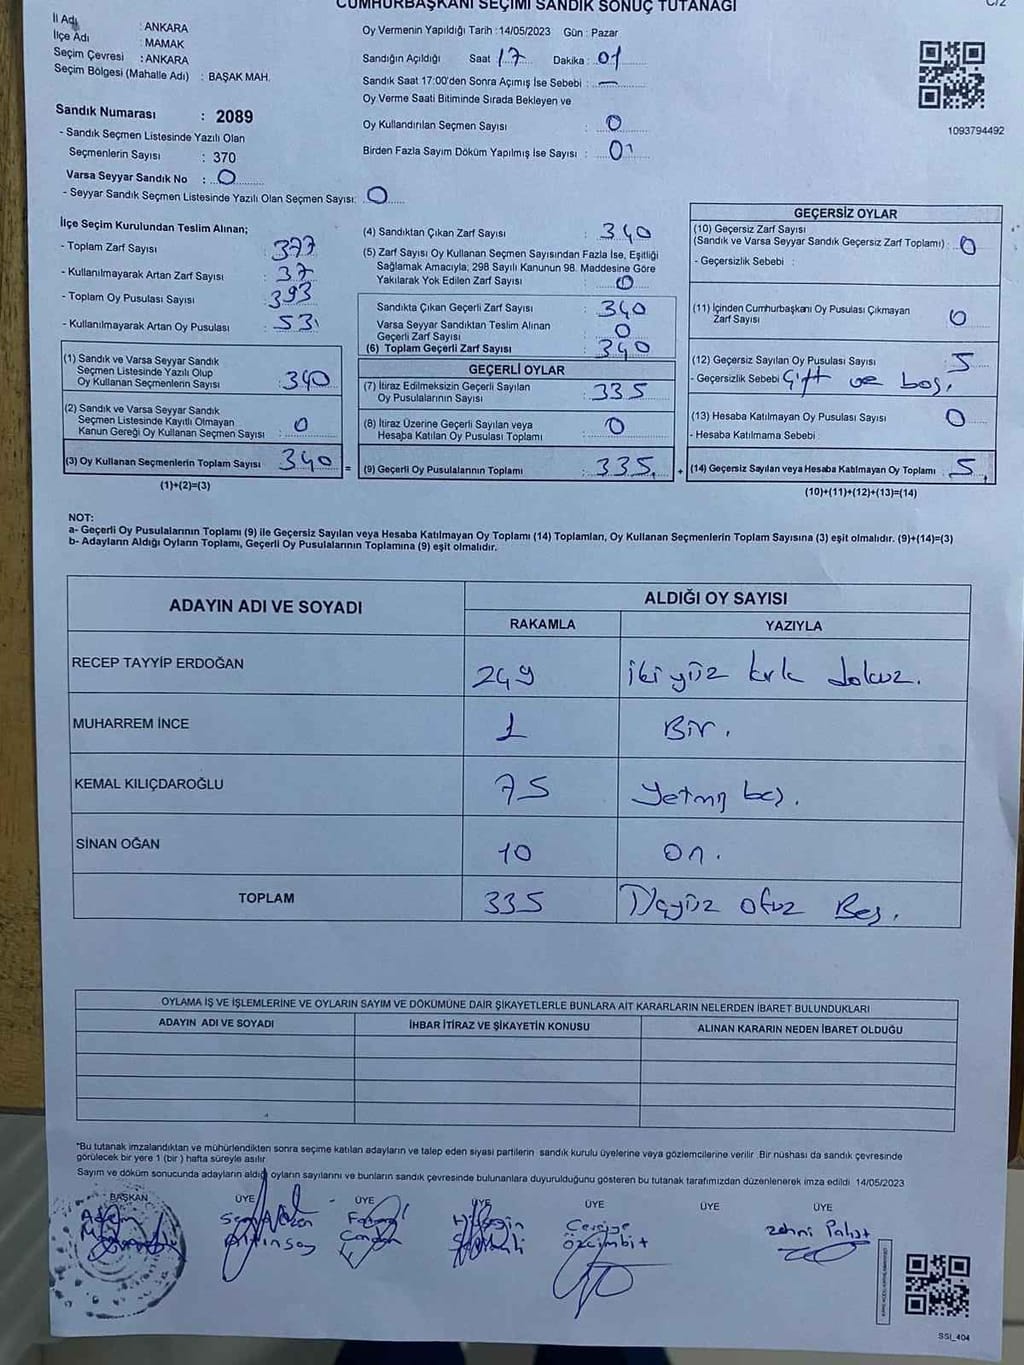 CUMHURBAŞKANI SEÇİMİ SANDIK SONUÇ TUTANAĞI
C/2
İl Adı : ANKARA
İlçe Adı : MAMAK
Seçim Çevresi : ANKARA
Seçim Bölgesi (Mahalle Adı) : BAŞAK MAH.
Sandık Numarası : 2089
- Sandık Seçmen Listesinde Yazılı Olan
Seçmenlerin Sayısı : 370
Varsa Seyyar Sandık No : 0
- Seyyar Sandık Seçmen Listesinde Yazılı Olan Seçmen Sayısı: 0
Oy Vermenin Yapıldığı Tarih : 14/05/2023 Gün : Pazar
Sandığın Açıldığı Saat 17 Dakika : 01
Sandık Saat 17:00'den Sonra Açımış İse Sebebi : —
Oy Verme Saati Bitiminde Sırada Bekleyen ve
Oy Kullandırılan Seçmen Sayısı : 0
Birden Fazla Sayım Döküm Yapılmış İse Sayısı : 01
1093794492
İlçe Seçim Kurulundan Teslim Alınan;
- Toplam Zarf Sayısı : 377
- Kullanılmayarak Artan Zarf Sayısı : 37
- Toplam Oy Pusulası Sayısı : 393
- Kullanılmayarak Artan Oy Pusulası : 53
(1) Sandık ve Varsa Seyyar Sandık
Seçmen Listesinde Yazılı Olup
Oy Kullanan Seçmenlerin Sayısı : 340
(2) Sandık ve Varsa Seyyar Sandık
Seçmen Listesinde Kayıtlı Olmayan
Kanun Gereği Oy Kullanan Seçmen Sayısı : 0
(3) Oy Kullanan Seçmenlerin Toplam Sayısı 340
(1)+(2)=(3)
=
(4) Sandıktan Çıkan Zarf Sayısı : 340
(5) Zarf Sayısı Oy Kullanan Seçmen Sayısından Fazla İse, Eşitliği
Sağlamak Amacıyla; 298 Sayılı Kanunun 98. Maddesine Göre
Yakılarak Yok Edilen Zarf Sayısı : 0
Sandıkta Çıkan Geçerli Zarf Sayısı : 340
Varsa Seyyar Sandıktan Teslim Alınan
Geçerli Zarf Sayısı : 0
(6) Toplam Geçerli Zarf Sayısı : 340
GEÇERLİ OYLAR
(7) İtiraz Edilmeksizin Geçerli Sayılan
Oy Pusulalarının Sayısı : 335
(8) İtiraz Üzerine Geçerli Sayılan veya
Hesaba Katılan Oy Pusulası Toplamı : 0
(9) Geçerli Oy Pusulalarının Toplamı : 335
+
GEÇERSİZ OYLAR
(10) Geçersiz Zarf Sayısı
(Sandık ve Varsa Seyyar Sandık Geçersiz Zarf Toplamı) : 0
- Geçersizlik Sebebi :
(11) İçinden Cumhurbaşkanı Oy Pusulası Çıkmayan
Zarf Sayısı 0
(12) Geçersiz Sayılan Oy Pusulası Sayısı 5
- Geçersizlik Sebebi Çift ve boş.
(13) Hesaba Katılmayan Oy Pusulası Sayısı 0
- Hesaba Katılmama Sebebi :
(14) Geçersiz Sayılan veya Hesaba Katılmayan Oy Toplamı : 5
(10)+(11)+(12)+(13)=(14)
NOT:
a- Geçerli Oy Pusulalarının Toplamı (9) ile Geçersiz Sayılan veya Hesaba Katılmayan Oy Toplamı (14) Toplamları, Oy Kullanan Seçmenlerin Toplam Sayısına (3) eşit olmalıdır. (9)+(14)=(3)
b- Adayların Aldığı Oyların Toplamı, Geçerli Oy Pusulalarının Toplamına (9) eşit olmalıdır.
ADAYIN ADI VE SOYADI
ALDIĞI OY SAYISI
RAKAMLA YAZIYLA
RECEP TAYYİP ERDOĞAN 249 iki yüz kırk dokuz.
MUHARREM İNCE 1 Bir.
KEMAL KILIÇDAROĞLU 75 Yetmiş beş.
SİNAN OĞAN 10 on.
TOPLAM 335 Üçyüz otuz Beş.
OYLAMA İŞ VE İŞLEMLERİNE VE OYLARIN SAYIM VE DÖKÜMÜNE DAİR ŞİKAYETLERLE BUNLARA AİT KARARLARIN NELERDEN İBARET BULUNDUKLARI
ADAYIN ADI VE SOYADI İHBAR İTİRAZ VE ŞİKAYETİN KONUSU ALINAN KARARIN NEDEN İBARET OLDUĞU
*Bu tutanak imzalandıktan ve mühürlendikten sonra seçime katılan adayların ve talep eden siyasi partilerin sandık kurulu üyelerine veya gözlemcilerine verilir. Bir nüshası da sandık çevresinde
görülecek bir yere 1 (bir) hafta süreyle asılır.
Sayım ve döküm sonucunda adayların aldığı oyların sayılarını ve bunların sandık çevresinde bulunanlara duyurulduğunu gösteren bu tutanak tarafımızdan düzenlenerek imza edildi 14/05/2023
BAŞKAN ÜYE ÜYE ÜYE ÜYE ÜYE ÜYE
Adem
Altınsoy
Özcimbit
Zehni Polat
SSI_404